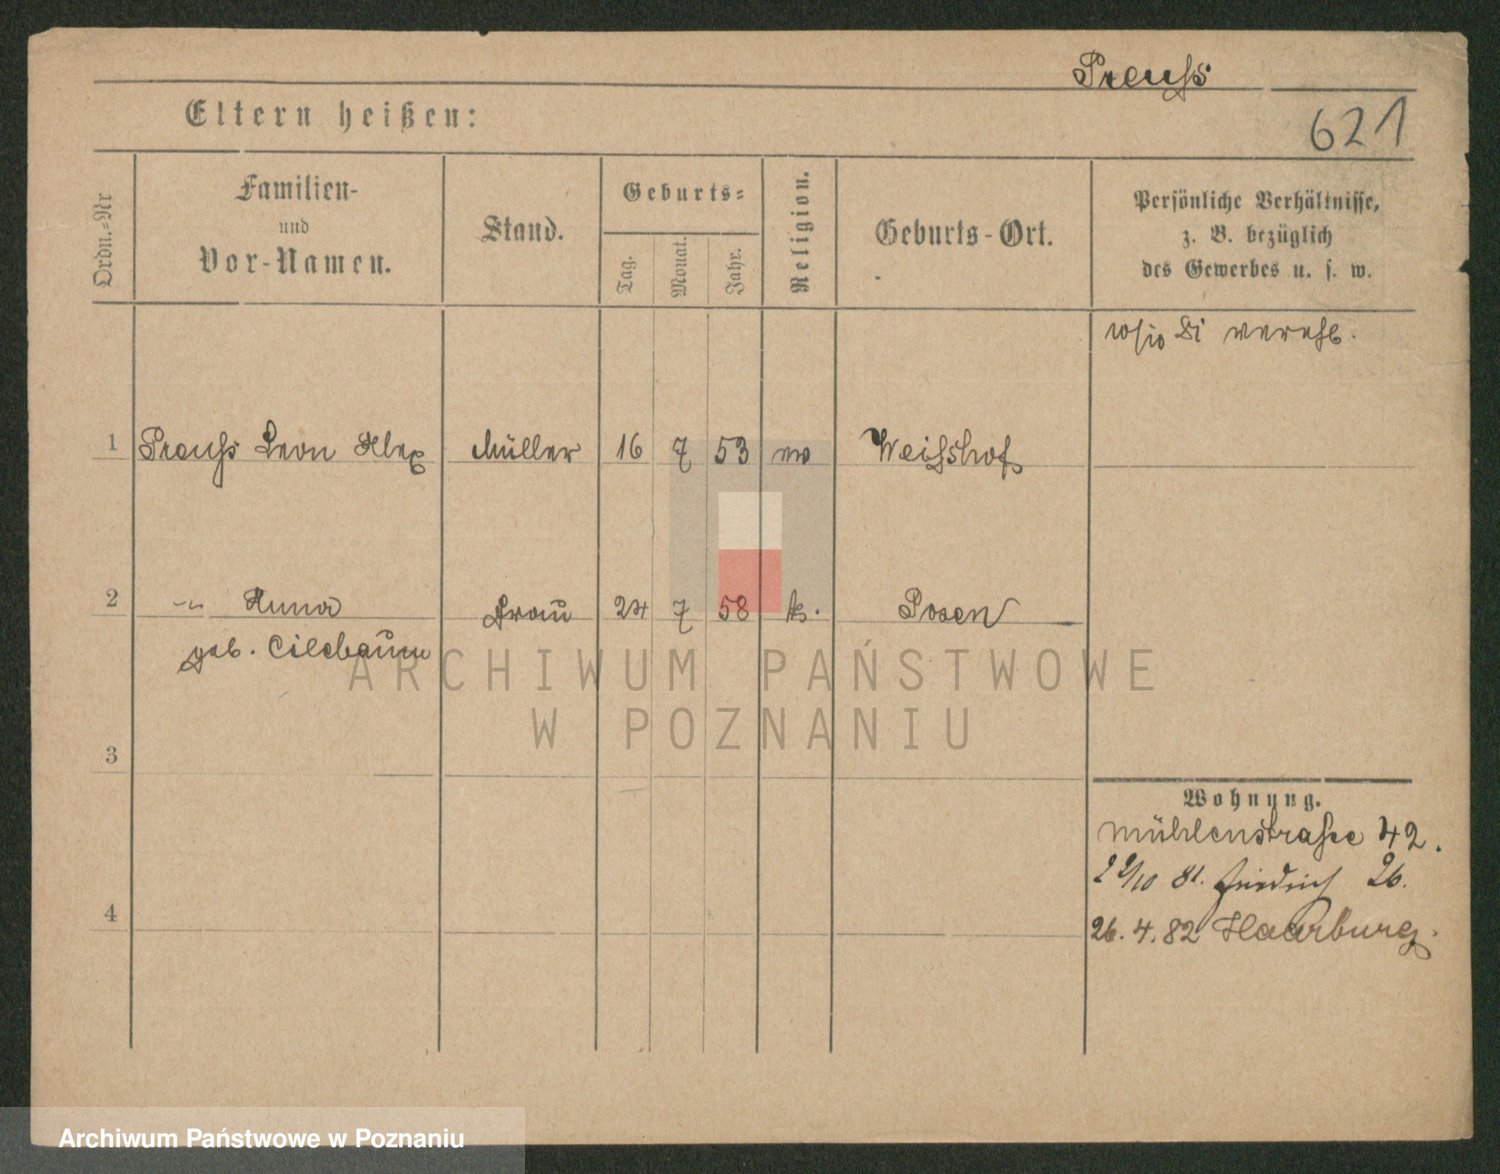 Preuss
Eltern heißen:
621
Ordn.-Nr
Familien-
und
Vor-Namen.
Stand.
Geburts-
Tag.
Monat.
Jahr.
Religion.
Geburts-Ort.
Persönliche Verhältnisse,
z. B. bezüglich
des Gewerbes u. s. w.
1 Preuss Leon Alex Müller 16 7 53 ev Weisshof
2 -"- Anna Frau 24 7 58 k. Posen
geb. Cilebaum
ARCHIWUM PAŃSTWOWE
W POZNANIU
3
4
Wohnung.
Mühlenstraße 42.
22/10 81. Friedrich 26.
26. 4. 82 Haarburg.
Archiwum Państwowe w Poznaniu